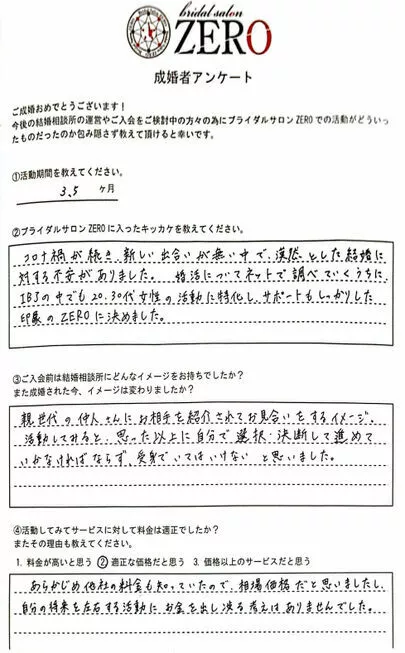 bridal salon
ZERO
成婚者アンケート
ご成婚おめでとうございます！
今後の結婚相談所の運営やご入会をご検討中の方々の為にブライダルサロンZEROでの活動がどういっ
たものだったのか包み隠さず教えて頂けると幸いです。
①活動期間を教えてください。
3.5 ヶ月
②ブライダルサロンZEROに入ったキッカケを教えてください。
コロナ禍が続き、新しい出会いが無い中で、漠然とした結婚に
対する不安がありました。婚活についてネットで調べていくうちに、
IBJの中でも20.30代女性の活動に特化し、サポートもしっかりした
印象のZEROに決めました。
③ご入会前は結婚相談所にどんなイメージをお持ちでしたか？
また成婚された今、イメージは変わりましたか？
親世代の仲人さんにお相手を紹介されてお見合いをするイメージ。
活動してみると、思った以上に自分で選択・決断して進めて
いかなければならず、受身でいてはいけないと思いました。
④活動してみてサービスに対して料金は適正でしたか？
またその理由も教えてください。
1. 料金が高いと思う ②適正な価格だと思う 3. 価格以上のサービスだと思う
あらかじめ他社の料金も知っていたので、相場価格だと思いましたし、
自分の将来を左右する活動にお金を出し渋る考えはありませんでした。